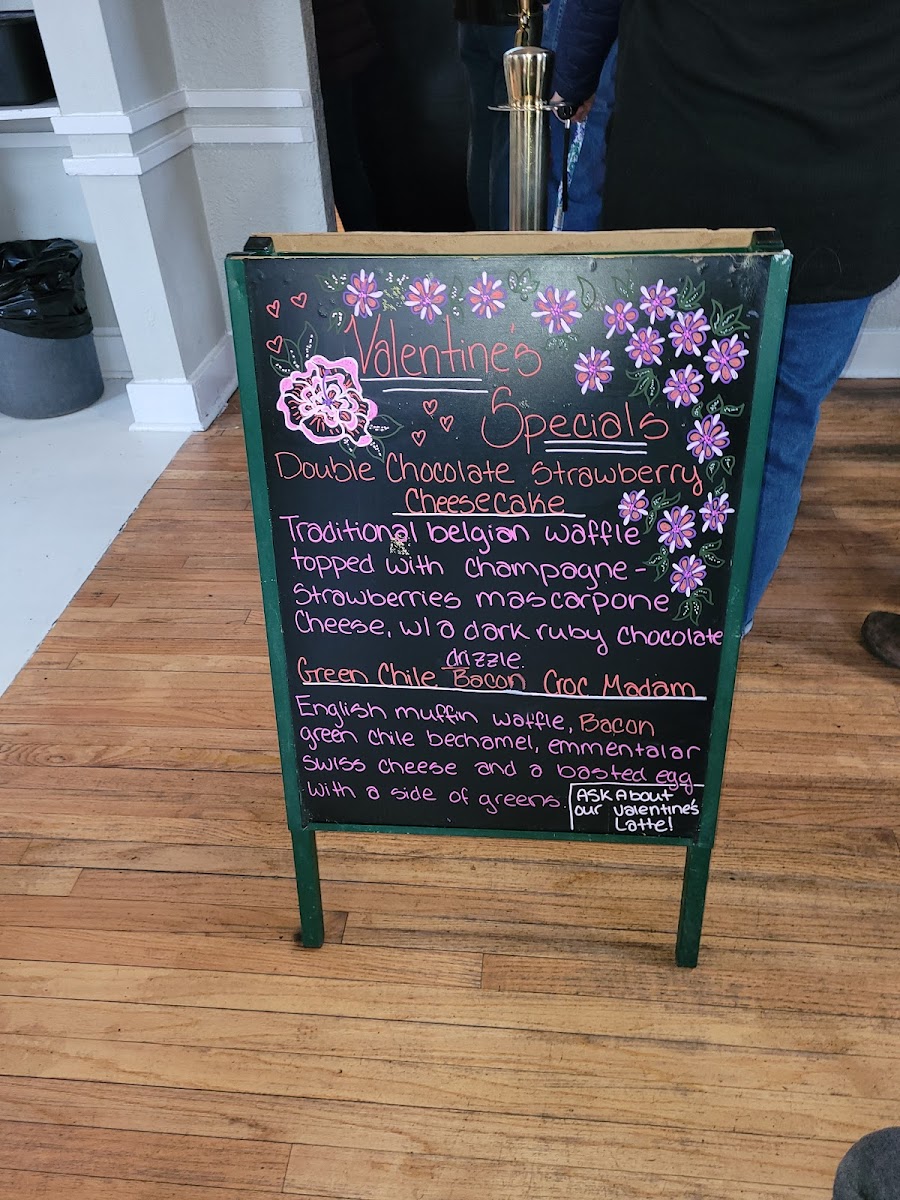 Valentine's
Specials
Double Chocolate Strawberry
Cheesecake
Traditional belgian waffle
topped with champagne-
strawberries mascarpone
Cheese, w/a dark ruby chocolate
drizzle.
Green Chile Bacon Croc Madam
English muffin waffle, Bacon
green chile bechamel, emmentalar
swiss cheese and a basted egg
with a side of greens.
ASK About
our valentine's
Latte!